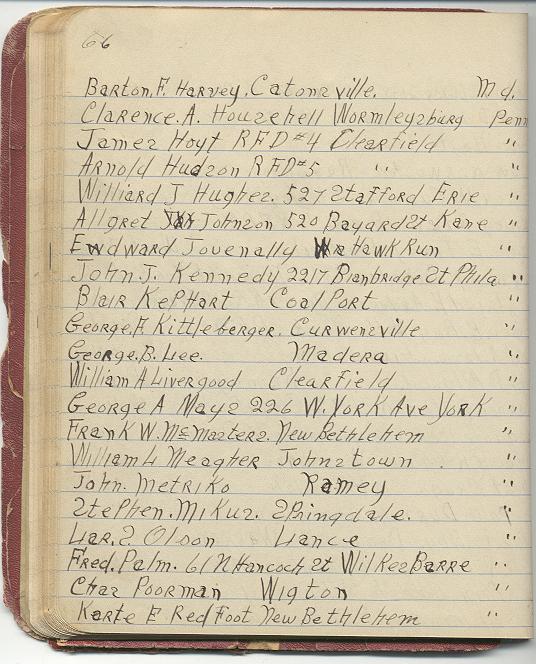 66
Barton.F. Harvey. Catonsville. Md.
Clarence.A. Househell Wormleysburg Penn
James Hoyt RFD #4 Clearfield "
Arnold Hudson RFD #5 " "
Williard J Hughes. 527 Stafford Erie "
Allgret Johnson 520 Bayard St Kane "
Edward Jovenally Hawk Run "
John.J. Kennedy 2217 Bianbridge St Phila "
Blair KePHart CoalPort "
George.F. Kittleberger. Curwensville "
George.B. Lee. Madera "
William A Livergood Clearfield "
George A Mays 226 W. York Ave York "
Frank W. McMasters. New Bethlehem "
William L Meagher Johnstown . "
John. Metriko Ramey "
StePhen. Mikus. SPringdale. "
Lar. S. Olson Lance "
Fred. Palm. 61 N Hancock St WilkesBarre "
Chas Poorman Wigton "
Karte E RedFoot New Bethlehem "